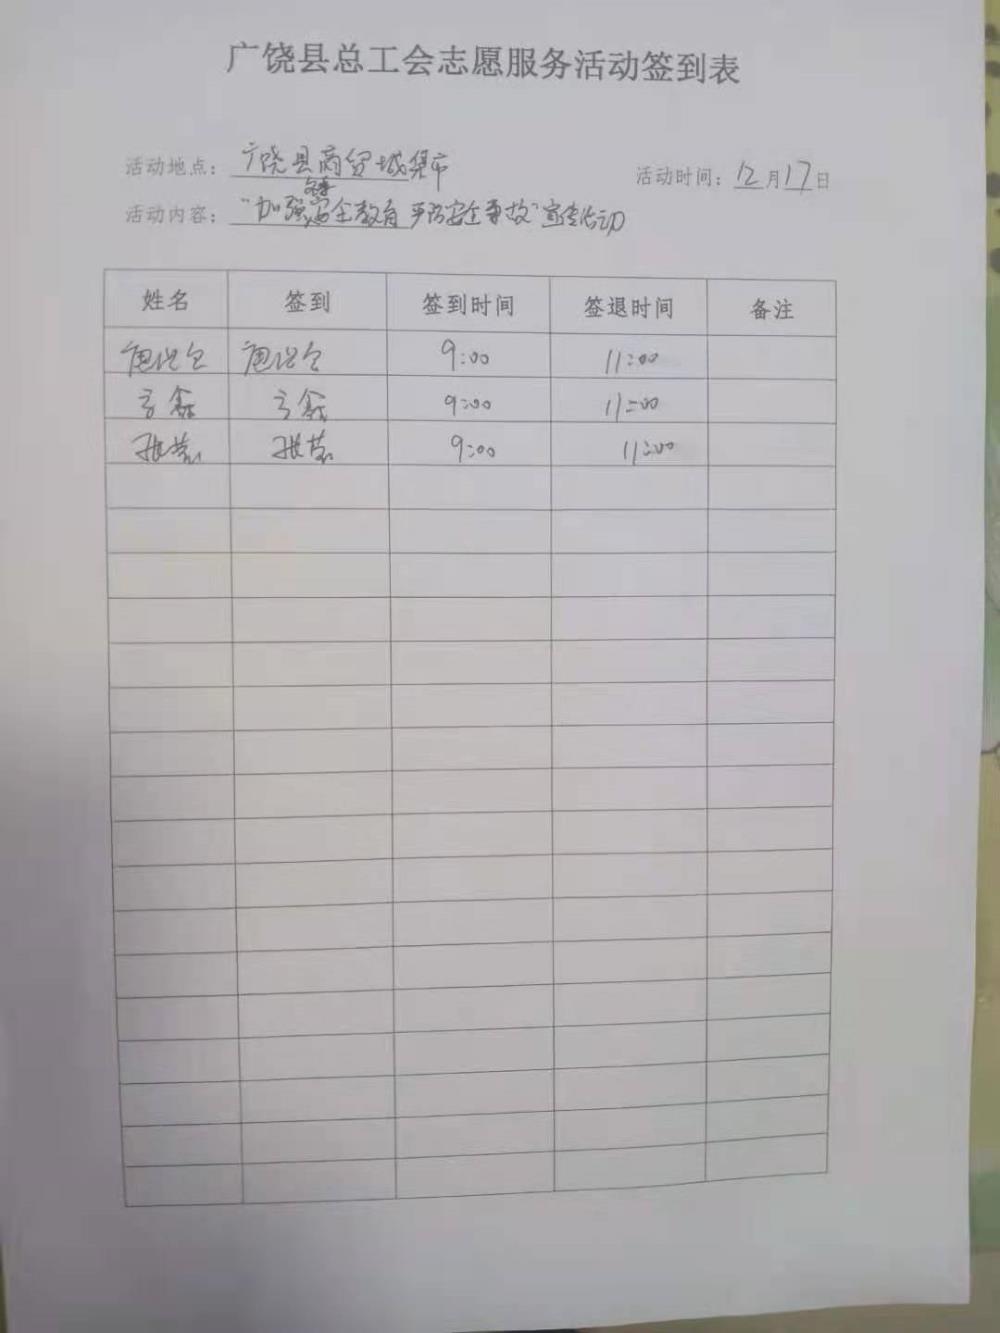 广饶县总工会志愿服务活动签到表
活动地点：广饶县商贸城集市 活动时间：12月17日
活动内容：“加强冬季安全教育 严防安全事故”宣传活动
姓名 签到 签到时间 签退时间 备注
9:00 11:00
9:00 11:00
9:00 11:00